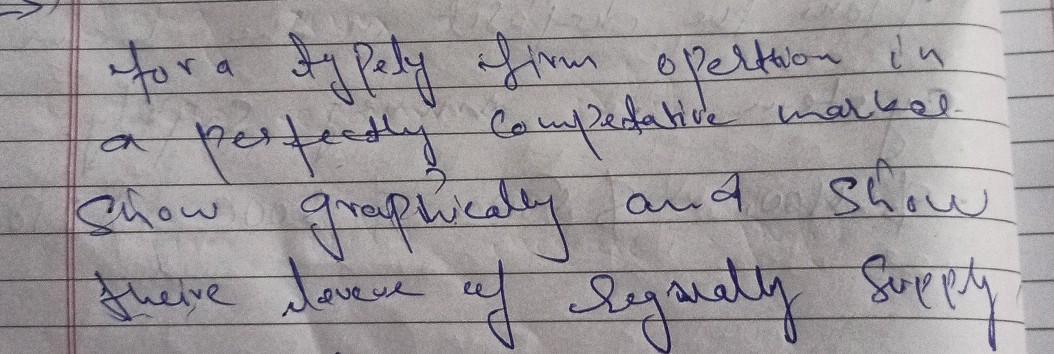 for a typely firm opertion in
a perfectly Competative market
Show graphically and Show
theire of Supply